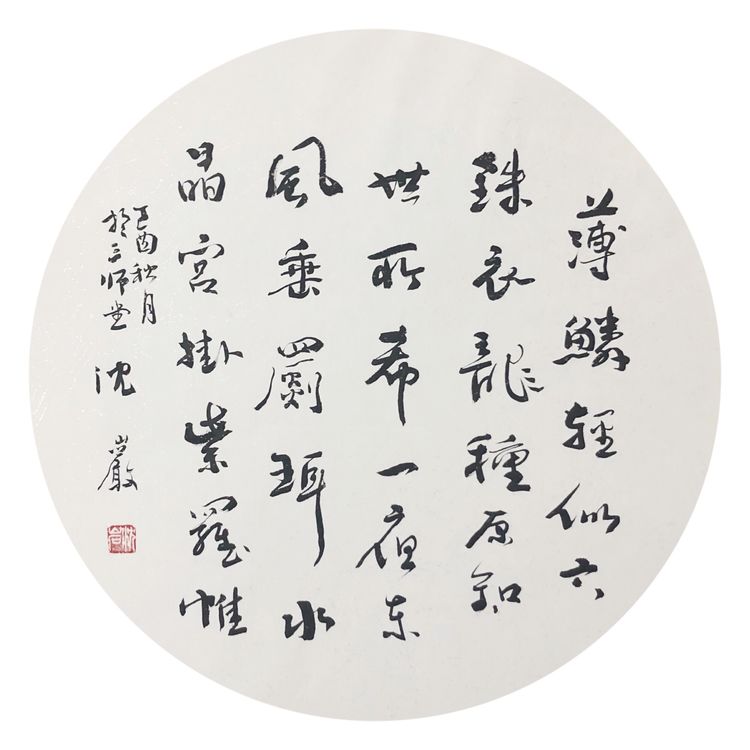 薄鱗輕似六
銖衣龍種原知
世所希一夜東
風垂罽珥水
晶宮掛紫羅帷
丁酉秋月
於三師堂
沈巖